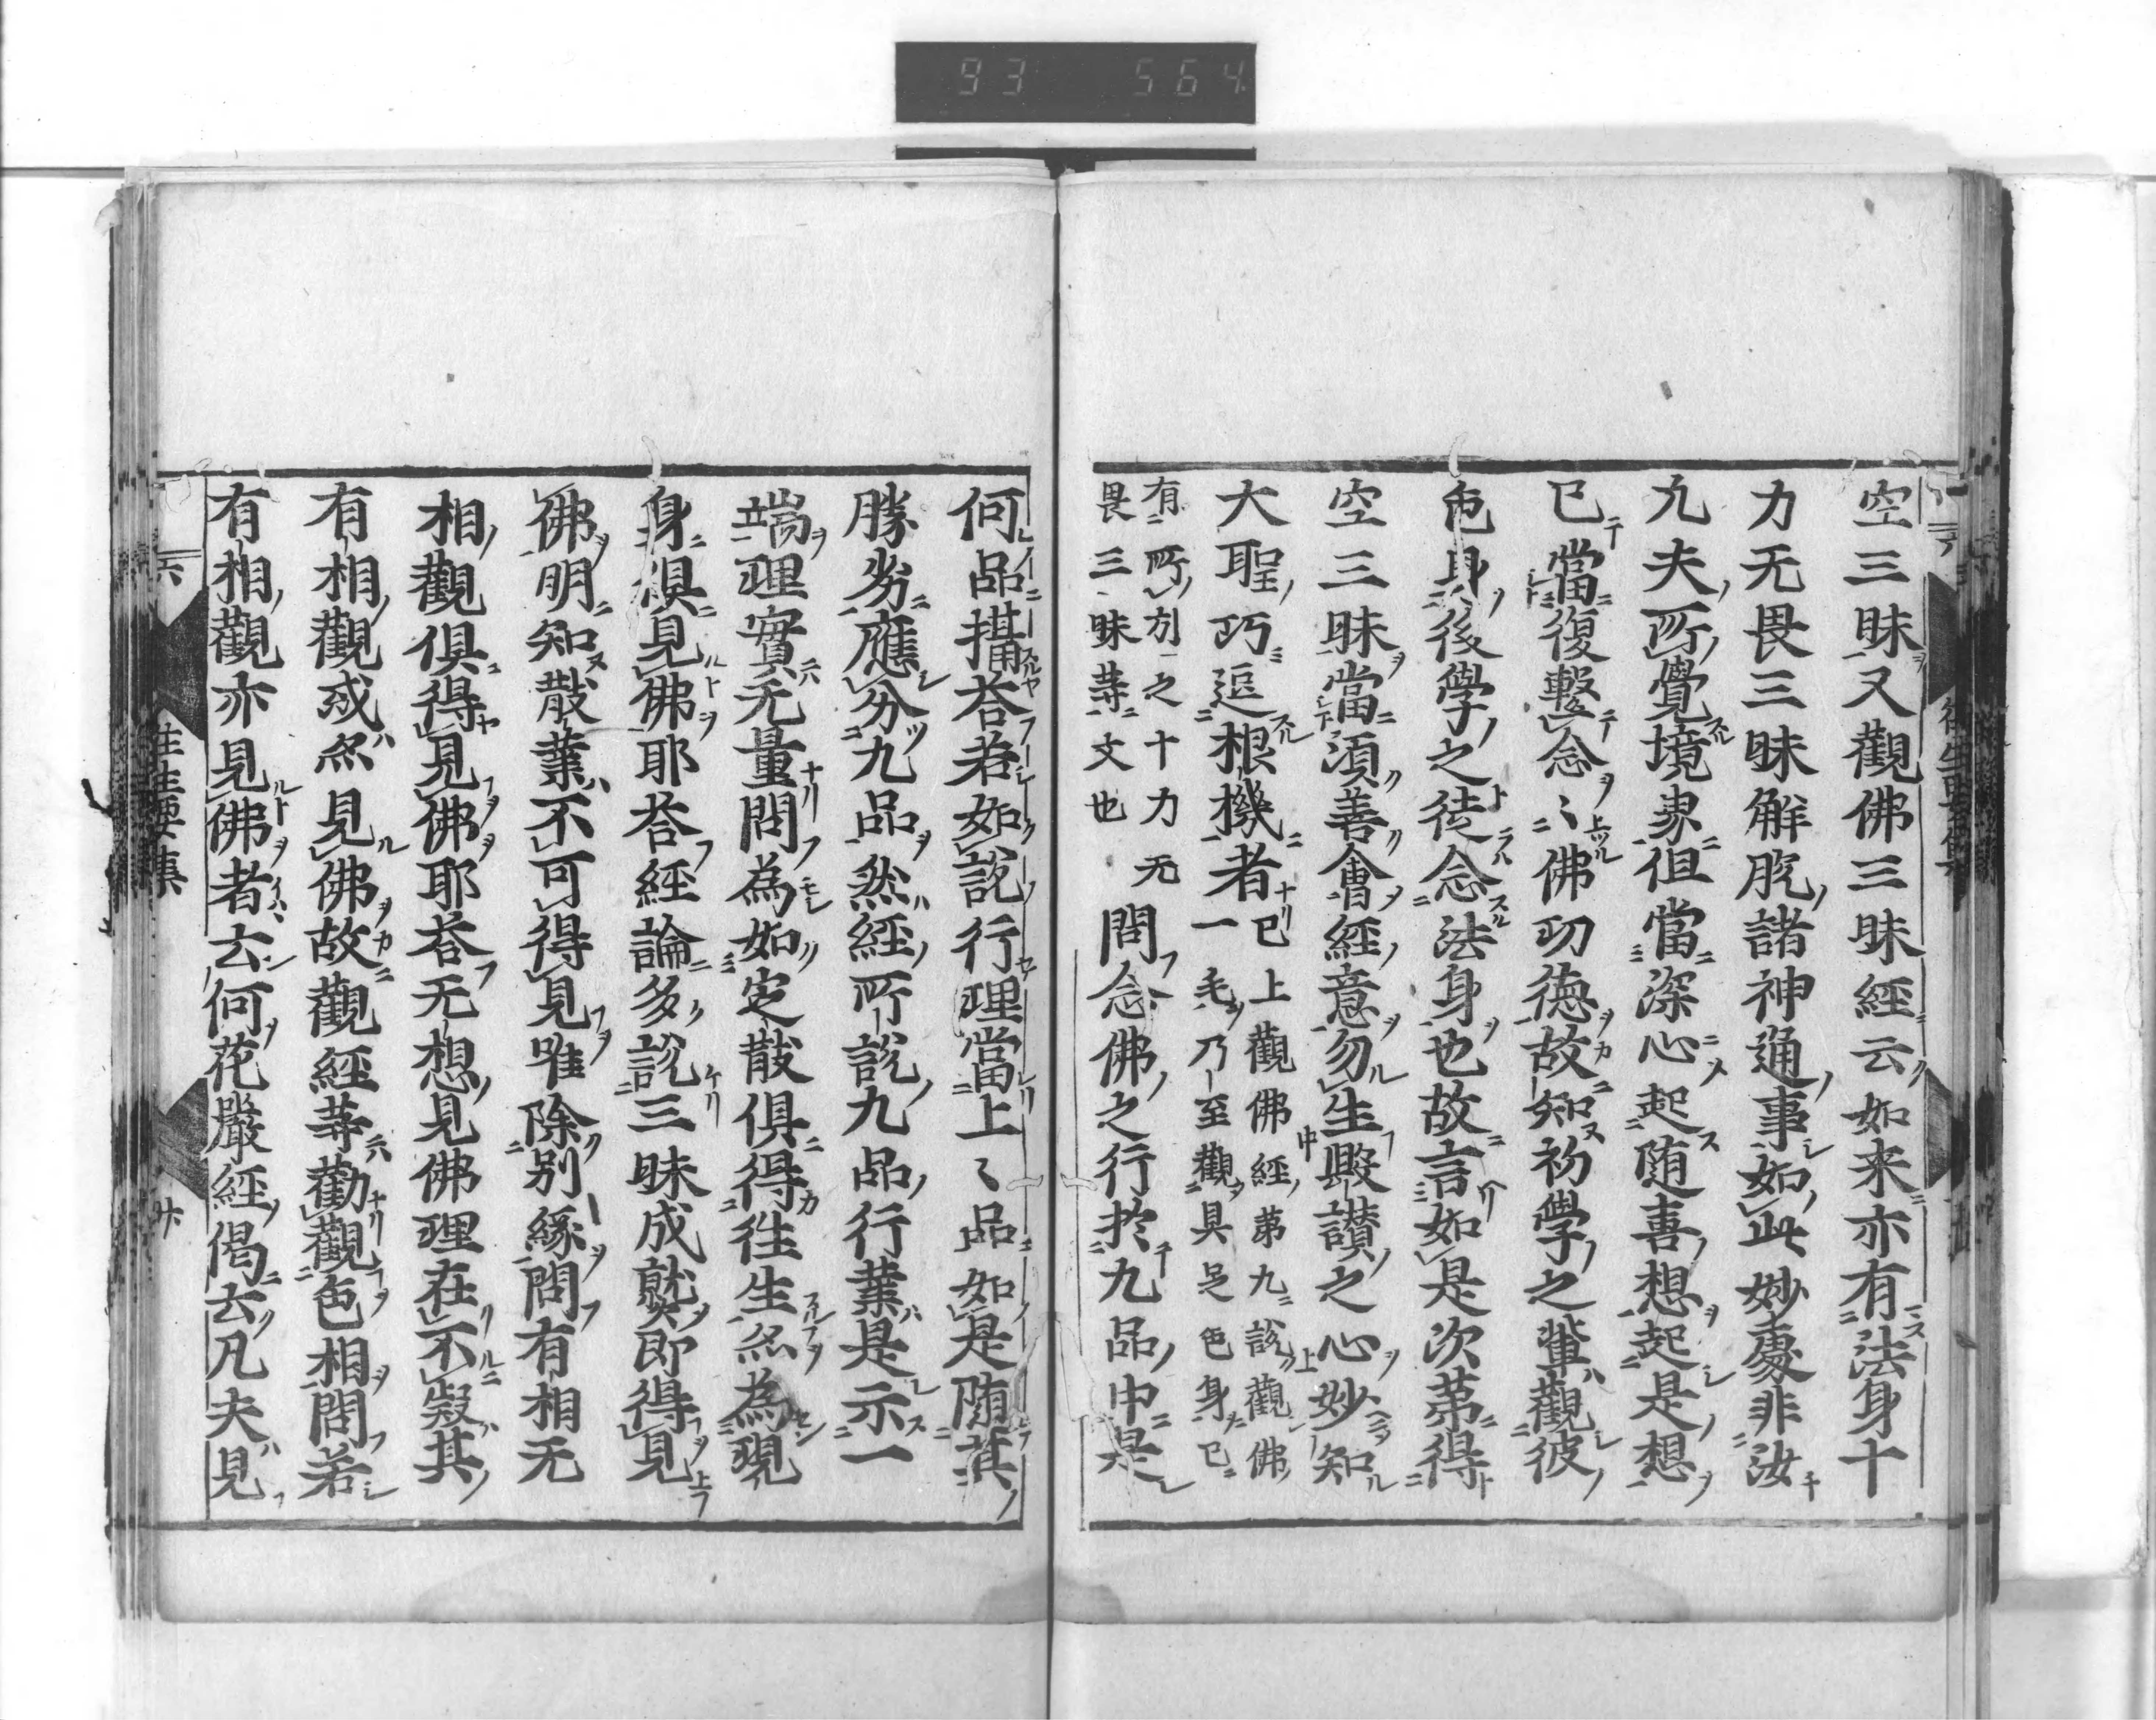 93 564
空三昧又觀佛三昧經云如来亦有法身十
力无畏三昧解脱諸神通事如此妙處非汝
凢夫所覺境界但當深心起随喜想起是想
已當復繫念〻佛功徳故知初學之輩觀彼
色身後學之徒念法身也故言如是次第得
空三昧當須善會經意勿生毀讃之心妙知
大聖巧逗根機者已上觀佛經第九說觀佛
一毛乃至觀具足色身已
有所刋之十力无
畏三昧䓁文也
問念佛之行於九品中是
何品攝荅若如說行理當上〻品如是随其
勝劣應分九品然經所說九品行業是示一
端理實无量問為如定散俱得徃生亦為現
身俱見佛耶荅經論多說三昧成就即得見
佛明知散業不可得見唯除别緣問有相无
相觀俱得見佛耶荅无想見佛理在不疑其
有相觀或亦見佛故觀經䓁勸觀色相問若
有相觀亦見佛者云何花嚴經偈云凡夫見
六
往生要集